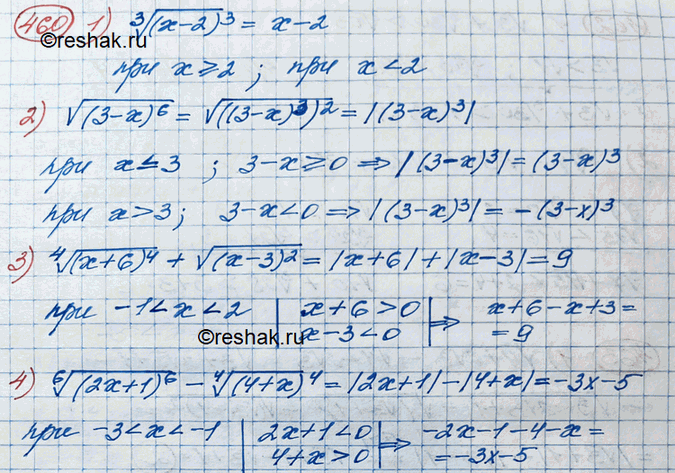 460 1) ∛(x-2)³ = x-2
©reshak.ru
при x ≥ 2 ; при x < 2
2) √(3-x)⁶ = √((3-x)³)² = |(3-x)³|
при x ≤ 3 ; 3-x ≥ 0 ⇒ |(3-x)³| = (3-x)³
при x > 3 ; 3-x < 0 ⇒ |(3-x)³| = -(3-x)³
3) ∜(x+6)⁴ + √(x-3)² = |x+6| + |x-3| = 9
при -1 < x < 2 | x+6 > 0 | ⇒ x+6-x+3 =
x-3 < 0 = 9
©reshak.ru
4) ⁶√(2x+1)⁶ - ∜(4+x)⁴ = |2x+1| - |4+x| = -3x-5
при -3 < x < -1 | 2x+1 < 0 | ⇒ -2x-1-4-x =
4+x > 0 = -3x-5